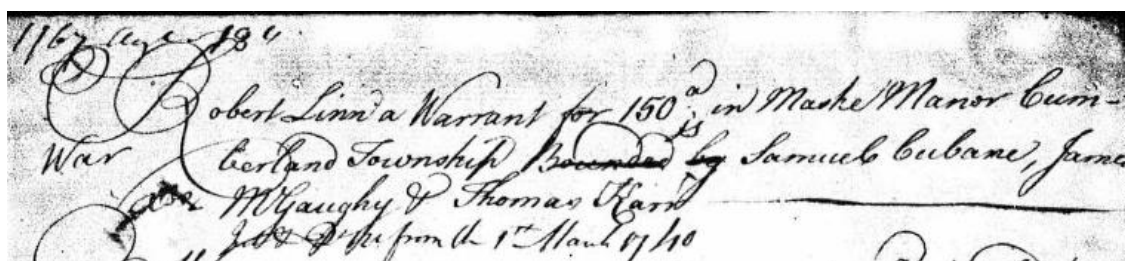 1767 Augt 18th
Robert Linn a Warrant for 150 a in Maske Manor Cum-
War berland Township Bounded by Samuel Cubane, James
McGaughy & Thomas Karr
Int & from the 1st March 1740